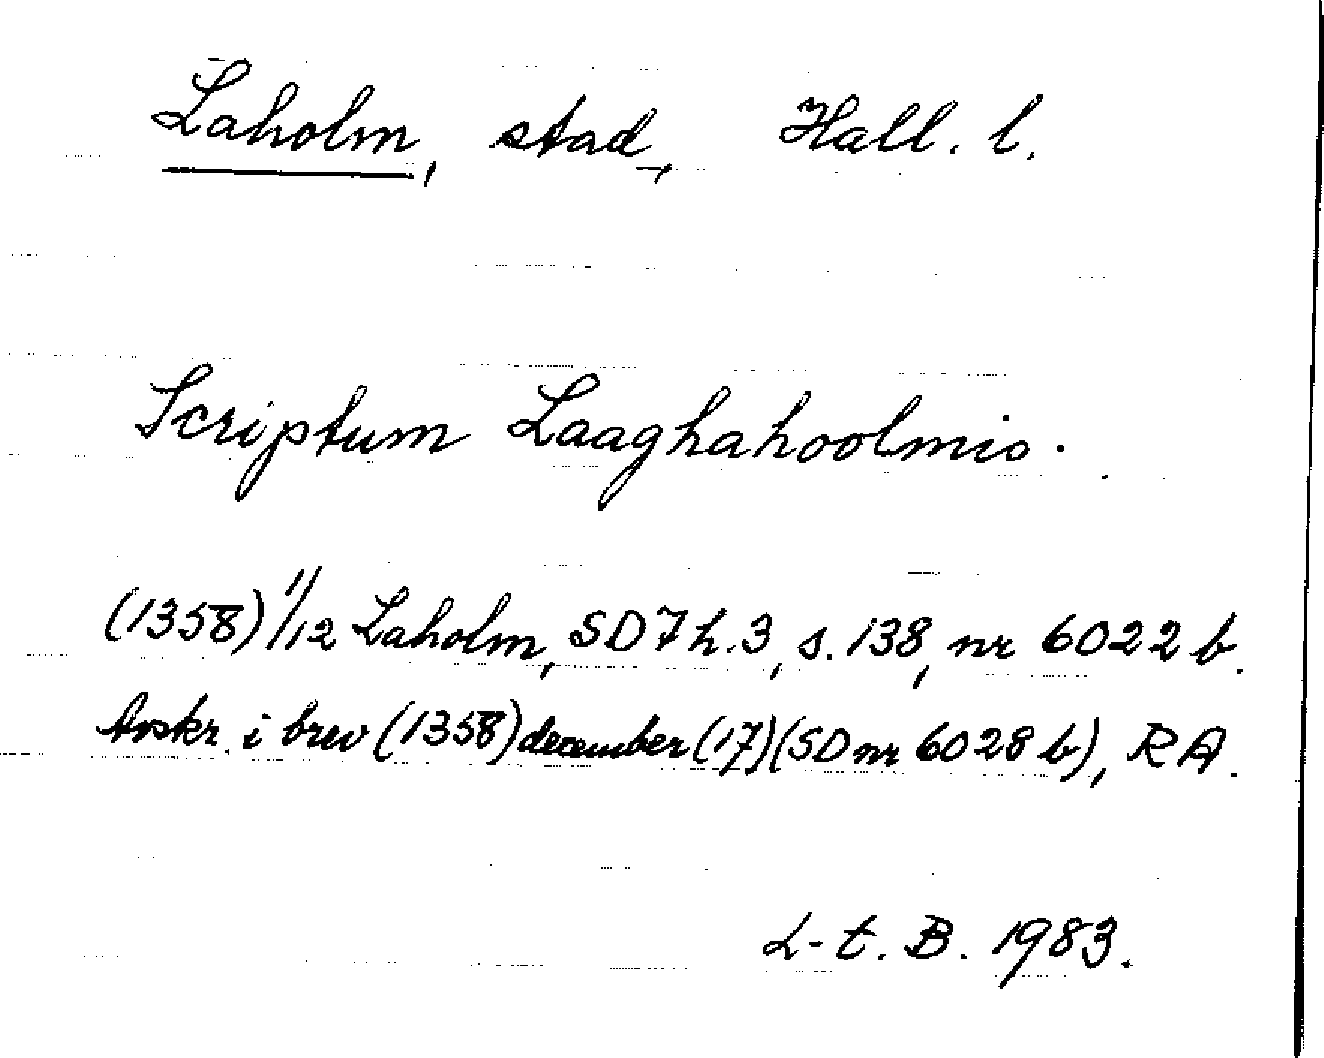 Laholm, stad, Hall. l.
Scriptum Laaghahoolmis.
(1358) 11/12 Laholm, SD 7 h. 3, s. 138, nr 6022 b.
Avskr. i brev (1358) december (17) (SD nr 6028 b), RA.
L-t. B. 1983.